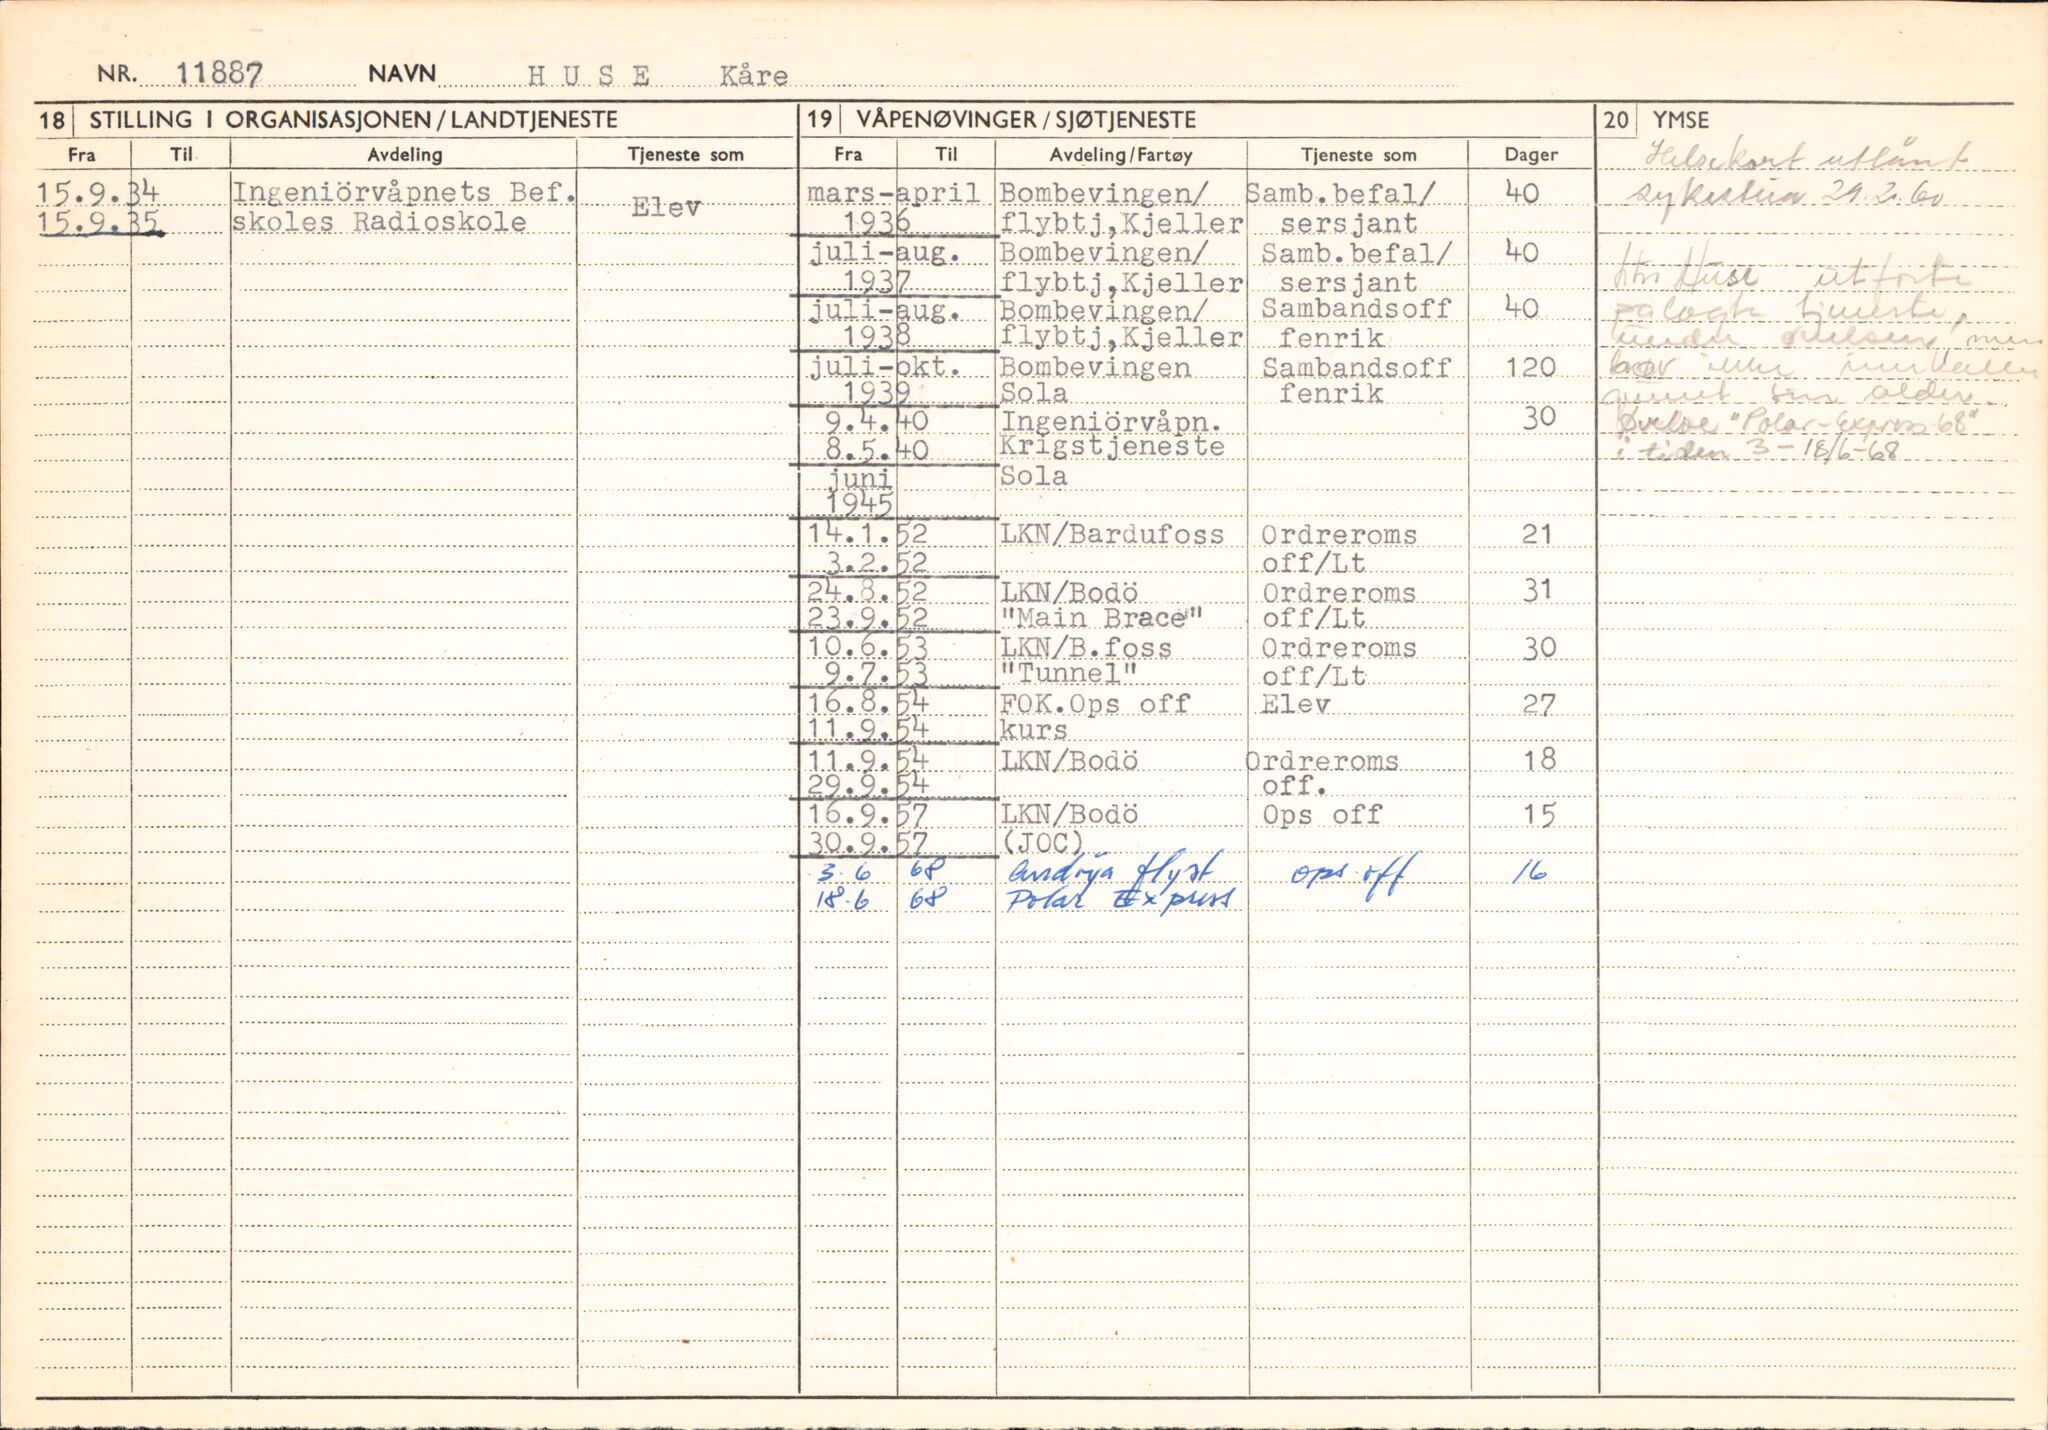 NR. 11887 NAVN H U S E Kåre
18 STILLING I ORGANISASJONEN/LANDTJENESTE
Fra Til Avdeling Tjeneste som
15.9.34 Ingeniörvåpnets Bef.
Elev
15.9.35 skoles Radioskole
19 VÅPENØVINGER/SJØTJENESTE
Fra Til Avdeling/Fartøy Tjeneste som Dager
mars-april Bombevingen/ Samb.befal/ 40
1936 flybtj,Kjeller sersjant
juli-aug. Bombevingen/ Samb.befal/ 40
1937 flybtj,Kjeller sersjant
juli-aug. Bombevingen/ Sambandsoff 40
1938 flybtj,Kjeller fenrik
juli-okt. Bombevingen Sambandsoff 120
1939 Sola fenrik
9.4.40 Ingeniörvåpn. 30
8.5.40 Krigstjeneste
juni Sola
1945
14.1.52 LKN/Bardufoss Ordreroms 21
3.2.52 off/Lt
24.8.52 LKN/Bodö Ordreroms 31
23.9.52 "Main Brace" off/Lt
10.6.53 LKN/B.foss Ordreroms 30
9.7.53 "Tunnel" off/Lt
16.8.54 FOK.Ops off Elev 27
11.9.54 kurs
11.9.54 LKN/Bodö Ordreroms 18
29.9.54 off.
16.9.57 LKN/Bodö Ops off 15
30.9.57 (JOC)
3.6 68 Andöya flyst ops off 16
18.6 68 Polar Express
20 YMSE
Helsekort utlånt
sykestua 29.2.60
Huse utførte
tjeneste,
men
bør ikke
sin alder.
Øvelse "Polar-Express 68"
i tiden 3-18/6-68